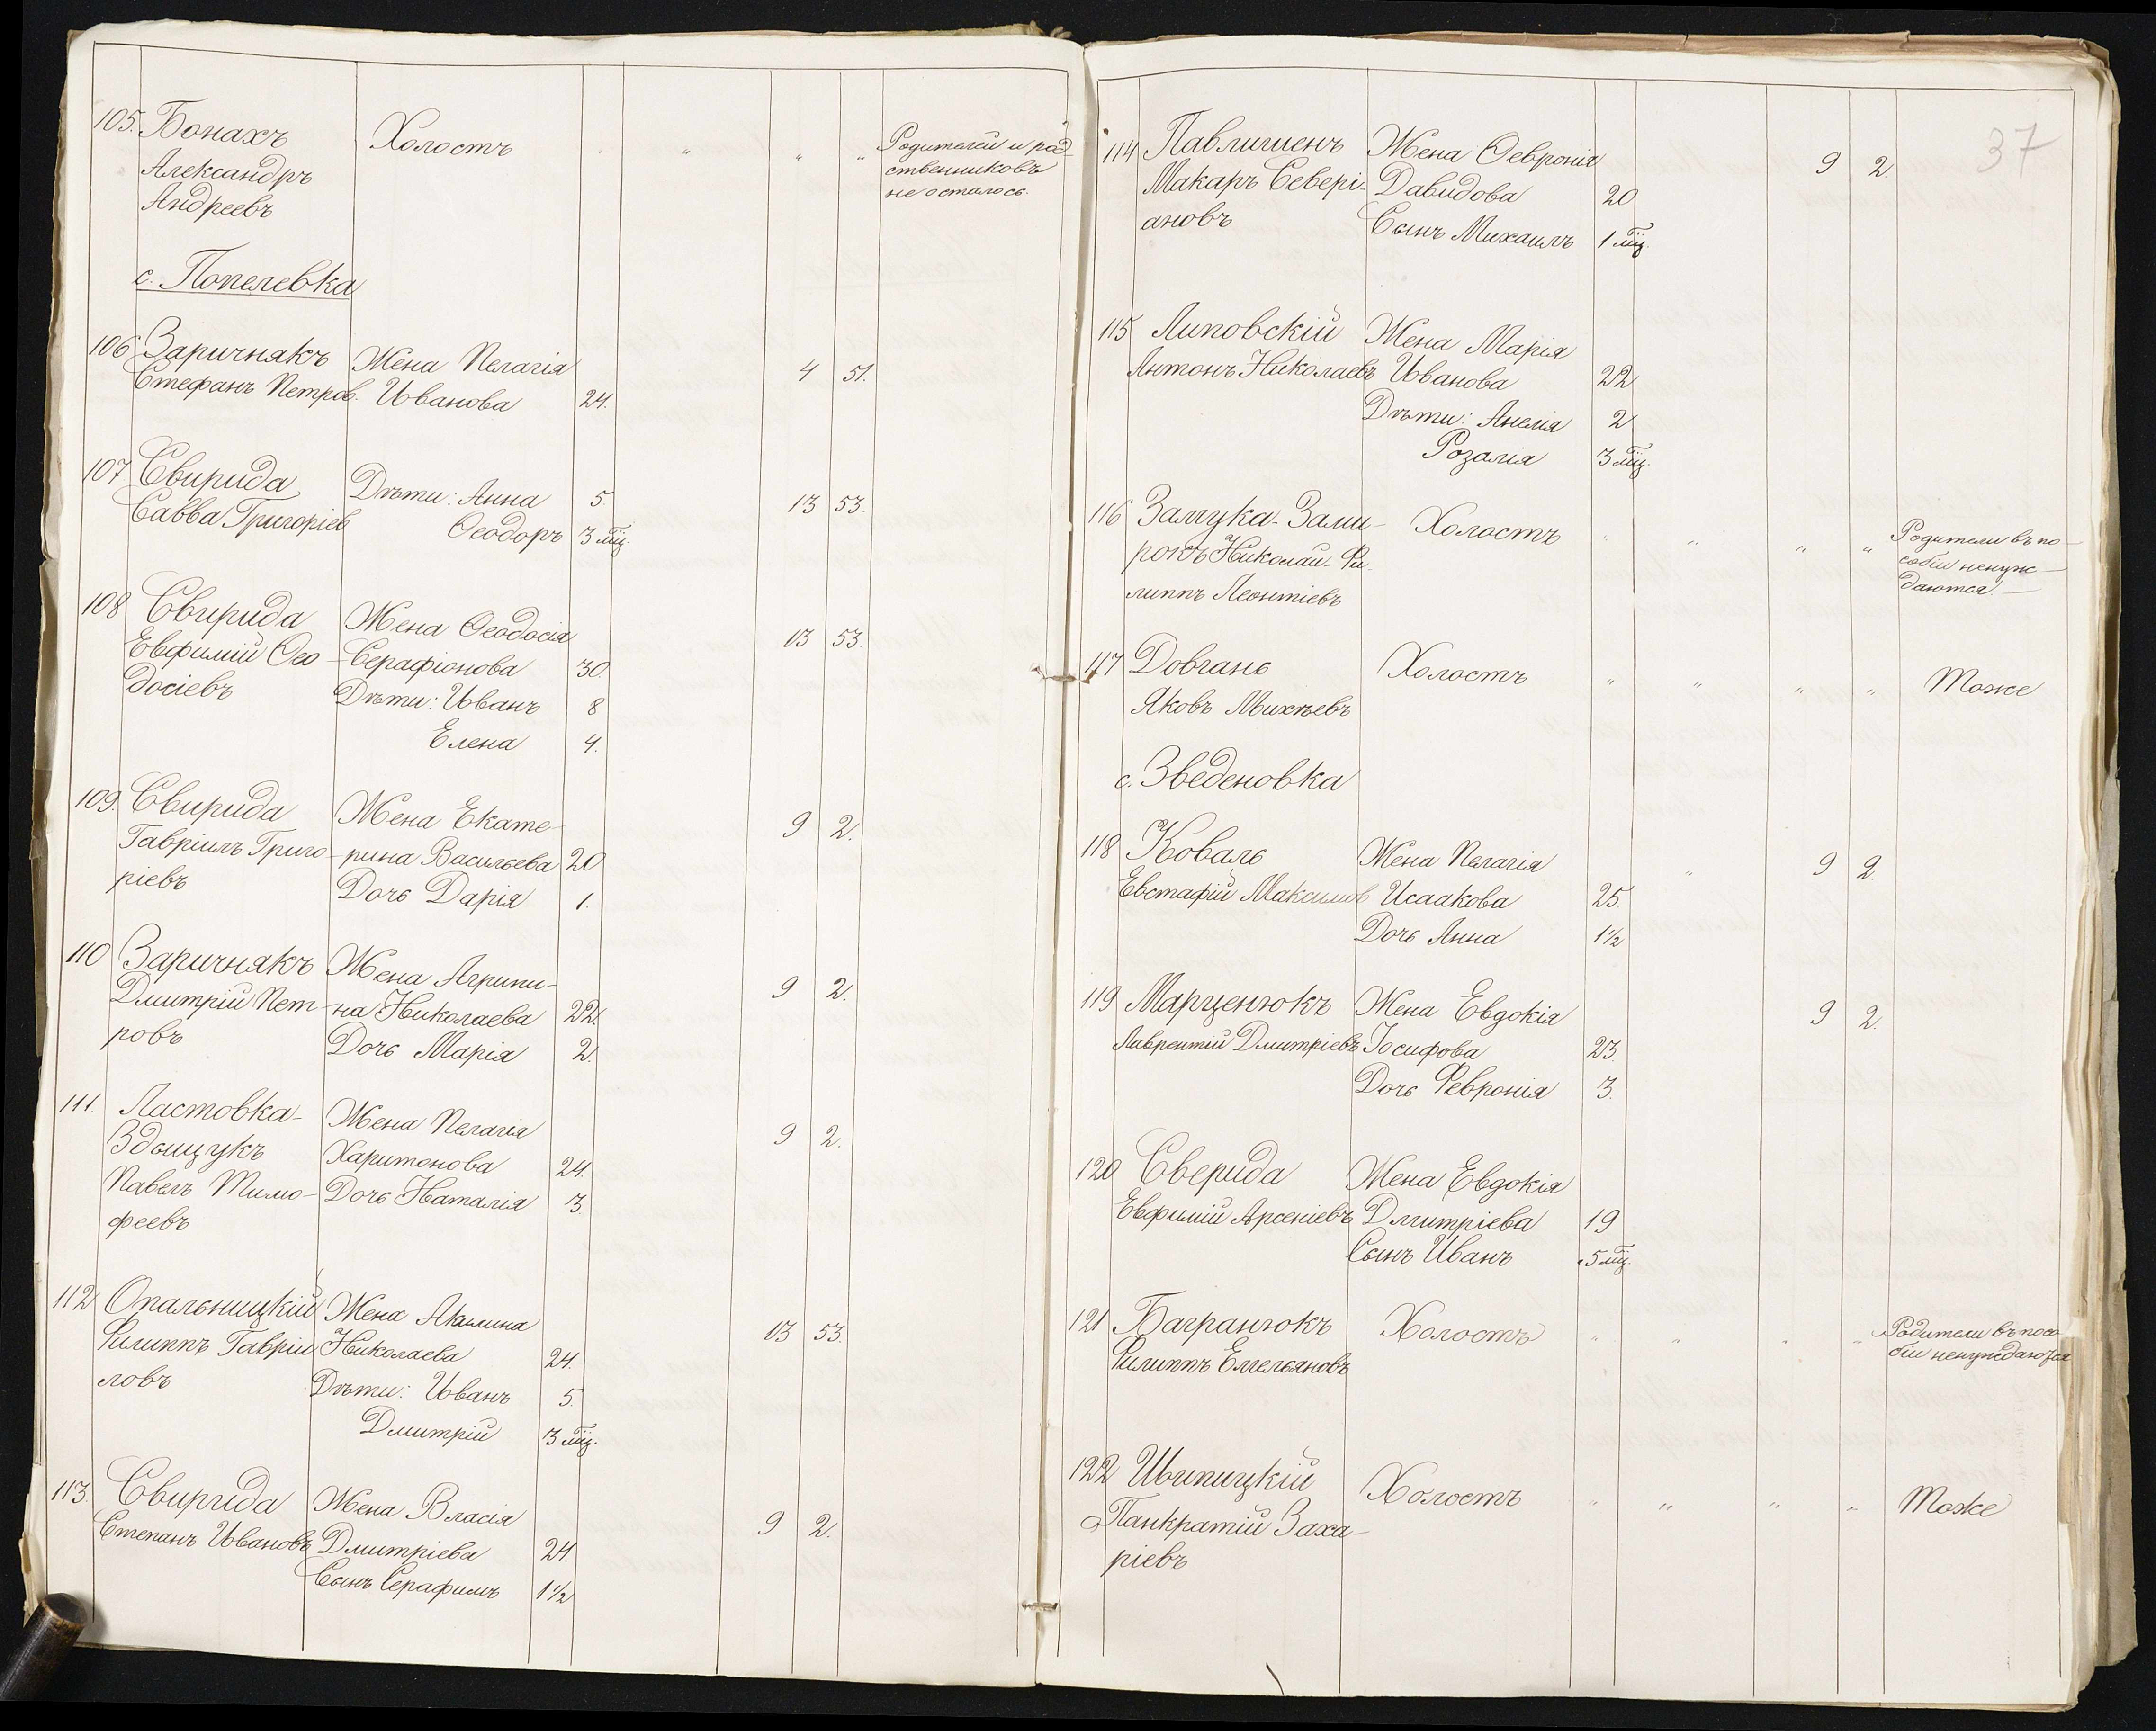 105. Бонахъ Холостъ " " " Родителей и род-
Александръ ственниковъ
Андреевъ не осталось.
с. Попелевка
106 Заричнякъ Жена Пелагія 4 51.
Стефанъ Петров. Иванова 24.
107 Свирида Дѣти: Анна 5. 13 53.
Савва Григоріев Ѳеодоръ 3 мц.
108 Свирида Жена Ѳеодосія 13 53.
Евфимій Ѳео- Серафіонова 30.
досіевъ Дѣти: Иванъ 8
Елена 4.
109. Свирида Жена Екате- 9 2.
Гавріилъ Григо- рина Васильева 20
ріевъ Дочь Дарія 1.
110 Заричнякъ Жена Агрипи- 9 2.
Дмитрій Пет- на Николаева 22.
ровъ Дочь Марія 2.
111. Ластовка- Жена Пелагія 9 2.
Здыщукъ Харитонова 24.
Павелъ Тимо- Дочь Наталія 3.
феевъ
112 Опальницкій Жена Акилина 13 53.
Филиппъ Гавріи Николаева 24.
ловъ Дѣти: Иванъ 5.
Дмитрій 3 мц.
113. Свирида Жена Власія 9 2.
Степанъ Ивановъ Дмитріева 24.
Сынъ Серафимъ 1 1/2
37
114 Павлишенъ Жена Ѳевронія 9 2.
Макаръ Севері- Давидова 20
ановъ Сынъ Михаилъ 1 мц.
115 Липовскій Жена Марія
Антонъ Николаевъ Иванова 22
Дѣти: Анелія 2
Розалія 3 мц.
116 Замука-Зами- Холостъ " " " " Родители въ по-
рокъ Николай-Фи- собіи ненуж-
липпъ Леонтіевъ даются.
117 Довгань Холостъ " " " " Тоже
Яковъ Михѣевъ
с. Зведеновка
118 Коваль Жена Пелагія " 9 2.
Евстафій Максимов Исаакова 25.
Дочь Анна 1 1/2
119 Марценюкъ Жена Евдокія 9 2.
Лаврентій Дмитріевъ Іосифова 23.
Дочь Февронія 3.
120 Сверида Жена Евдокія
Евфимій Арсеніевъ Дмитріева 19
Сынъ Иванъ 5 мц.
121 Багранюкъ Холостъ " " " " Родители въ посо-
Филиппъ Емельяновъ біи ненуждаются
122 Ивипицкій Холостъ " " " " Тоже
Панкратій Заха-
ріевъ